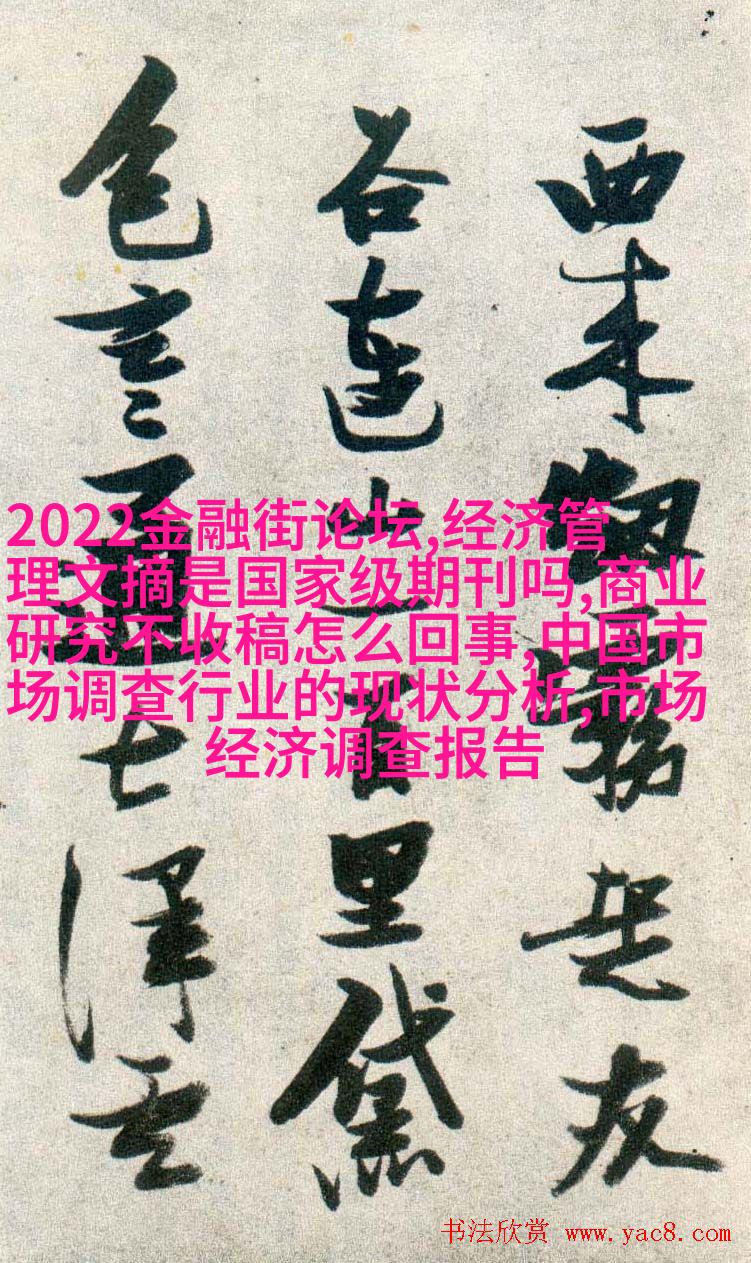 西来友
谷連山里黛
色言通七澤
2022金融街论坛,经济管
理文摘是国家级期刊吗,商业
研究不收稿怎么回事,中国市
场调查行业的现状分析,市场
经济调查报告
书法欣赏 www.yac8.com